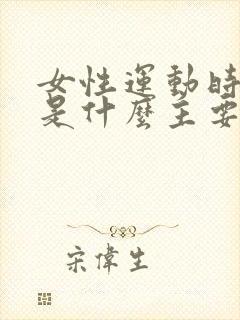 女性運動時
是什麼主要
宋偉生